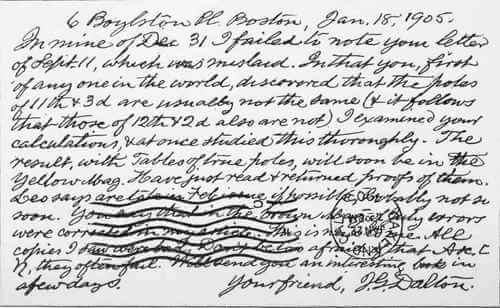 6 Boylston Pl. Boston, Jan. 18, 1905.
In mine of Dec 31 I failed to note your letter
of Sept. 11, which was mislaid. In that you, first
of any one in the world, discovered that the poles
of 11th & 3d are usually not the same (& it follows
that those of 12th & 2d also are not) I examined your
calculations, & at once studied this thoroughly. The
result, with Tables of true poles, will soon be in the
Yellow Mag. Have just read & returned proofs of them.
Leo says if possible. Probably not so
soon. You say that in the brown only errors
were corrected in This is not true. All
copies I saw were bad. Don't be too afraid that
R, they often fail. Will send you an interesting book in
a few days. Your friend, J. G. Dalton.